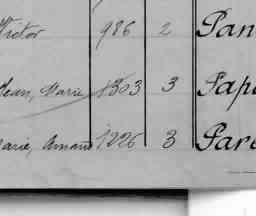 Victor 986 2 Pan
Jean, Marie 1303 3 Pap
Marie, Amand 1226 3 Par